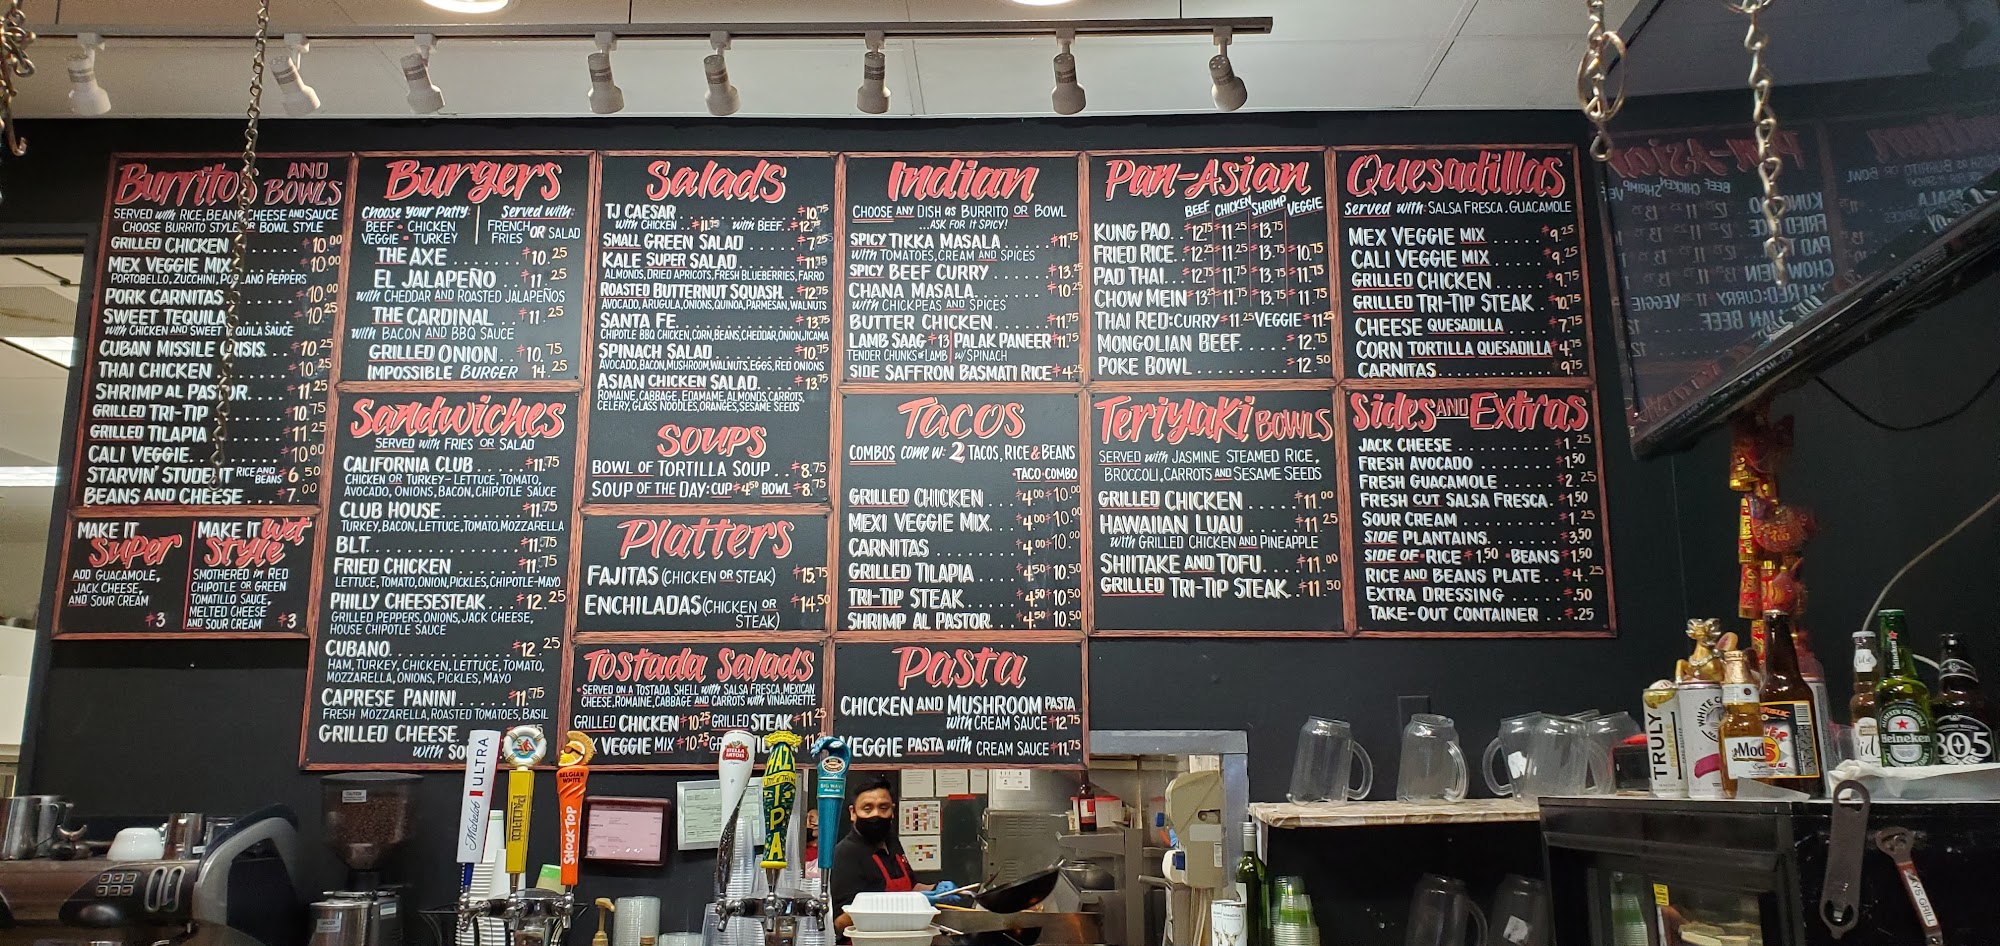 Burritos AND BOWLS
SERVED with RICE, BEANS, CHEESE AND SAUCE
CHOOSE BURRITO STYLE OR BOWL STYLE
GRILLED CHICKEN $10.00
MEX VEGGIE MIX $10.00
PORTOBELLO, ZUCCHINI, POBLANO PEPPERS
PORK CARNITAS $10.00
SWEET TEQUILA $10.25
with CHICKEN AND SWEET TEQUILA SAUCE
CUBAN MISSILE CRISIS $10.25
THAI CHICKEN $10.25
SHRIMP AL PASTOR $11.25
GRILLED TRI-TIP $10.75
GRILLED TILAPIA $11.25
CALI VEGGIE $10.00
STARVIN' STUDENT RICE AND BEANS $6.50
BEANS AND CHEESE $7.00
MAKE IT Super
ADD GUACAMOLE,
JACK CHEESE,
AND SOUR CREAM
$3
MAKE IT Wet Style
SMOTHERED in RED
CHIPOTLE OR GREEN
TOMATILLO SAUCE,
MELTED CHEESE
AND SOUR CREAM $3
Burgers
Choose your Patty:
BEEF • CHICKEN
VEGGIE • TURKEY
Served with:
FRENCH FRIES OR SALAD
THE AXE $10.25
EL JALAPEÑO $11.25
with CHEDDAR AND ROASTED JALAPEÑOS
THE CARDINAL $11.25
with BACON AND BBQ SAUCE
GRILLED ONION $10.75
IMPOSSIBLE BURGER 14.25
Sandwiches
SERVED with FRIES OR SALAD
CALIFORNIA CLUB $11.75
CHICKEN OR TURKEY- LETTUCE, TOMATO,
AVOCADO, ONIONS, BACON, CHIPOTLE SAUCE
CLUB HOUSE $11.75
TURKEY, BACON, LETTUCE, TOMATO, MOZZARELLA
BLT $11.75
FRIED CHICKEN $11.75
LETTUCE, TOMATO, ONION, PICKLES, CHIPOTLE-MAYO
PHILLY CHEESESTEAK $12.25
GRILLED PEPPERS, ONIONS, JACK CHEESE,
HOUSE CHIPOTLE SAUCE
CUBANO $12.25
HAM, TURKEY, CHICKEN, LETTUCE, TOMATO,
MOZZARELLA, ONIONS, PICKLES, MAYO
CAPRESE PANINI $11.75
FRESH MOZZARELLA, ROASTED TOMATOES, BASIL
GRILLED CHEESE
with
Salads
TJ CAESAR $10.75
with CHICKEN $11.75 with BEEF $12.75
SMALL GREEN SALAD $7.25
KALE SUPER SALAD $11.75
ALMONDS, DRIED APRICOTS, FRESH BLUEBERRIES, FARRO
ROASTED BUTTERNUT SQUASH $12.75
AVOCADO, ARUGULA, ONIONS, QUINOA, PARMESAN, WALNUTS
SANTA FE $13.75
CHIPOTLE BBQ CHICKEN, CORN, BEANS, CHEDDAR, ONION, JICAMA
SPINACH SALAD $10.75
AVOCADO, BACON, MUSHROOM, WALNUTS, EGGS, RED ONIONS
ASIAN CHICKEN SALAD $13.75
ROMAINE, CABBAGE, EDAMAME, ALMONDS, CARROTS,
CELERY, GLASS NOODLES, ORANGES, SESAME SEEDS
SOUPS
BOWL OF TORTILLA SOUP $8.75
SOUP OF THE DAY: CUP $4.50 BOWL $8.75
Platters
FAJITAS (CHICKEN OR STEAK) $15.75
ENCHILADAS (CHICKEN OR STEAK) $14.50
Tostada Salads
• SERVED ON A TOSTADA SHELL with SALSA FRESCA, MEXICAN
CHEESE, ROMAINE, CABBAGE AND CARROTS with VINAIGRETTE
GRILLED CHICKEN $10.25 GRILLED STEAK $11.25
VEGGIE MIX $10.25
Indian
CHOOSE ANY DISH as BURRITO OR BOWL
...ASK FOR IT SPICY!
SPICY TIKKA MASALA $11.75
with TOMATOES, CREAM AND SPICES
SPICY BEEF CURRY $13.25
CHANA MASALA $10.25
with CHICKPEAS AND SPICES
BUTTER CHICKEN $11.75
LAMB SAAG $13 PALAK PANEER $11.75
TENDER CHUNKS of LAMB w/ SPINACH
SIDE SAFFRON BASMATI RICE $4.25
TACOS
COMBOS come w: 2 TACOS, RICE & BEANS
-TACO-COMBO
GRILLED CHICKEN $4.00 $10.00
MEXI VEGGIE MIX $4.00 $10.00
CARNITAS $4.00 $10.00
GRILLED TILAPIA $4.50 $10.50
TRI-TIP STEAK $4.50 $10.50
SHRIMP AL PASTOR $4.50 10.50
Pasta
CHICKEN AND MUSHROOM PASTA
with CREAM SAUCE $12.75
VEGGIE PASTA with CREAM SAUCE $11.75
Pan-Asian
BEEF CHICKEN SHRIMP VEGGIE
KUNG PAO $12.75 $11.25 $13.75
FRIED RICE $12.25 $11.25 $13.75 $10.75
PAD THAI $12.75 $11.75 $13.75 $11.75
CHOW MEIN $13.25 $11.75 $13.75 $11.75
THAI RED: CURRY $11.25 VEGGIE $11.25
MONGOLIAN BEEF $12.75
POKE BOWL $12.50
Teriyaki BOWLS
SERVED with JASMINE STEAMED RICE,
BROCCOLI, CARROTS AND SESAME SEEDS
GRILLED CHICKEN $11.00
HAWAIIAN LUAU $11.25
with GRILLED CHICKEN AND PINEAPPLE
SHIITAKE AND TOFU $11.00
GRILLED TRI-TIP STEAK $11.50
Quesadillas
Served with: SALSA FRESCA, GUACAMOLE
MEX VEGGIE MIX $9.25
CALI VEGGIE MIX $9.25
GRILLED CHICKEN $9.75
GRILLED TRI-TIP STEAK $10.75
CHEESE QUESADILLA $7.75
CORN TORTILLA QUESADILLA $4.75
CARNITAS 9.75
Sides AND Extras
JACK CHEESE $1.25
FRESH AVOCADO $1.50
FRESH GUACAMOLE $2.25
FRESH CUT SALSA FRESCA $1.50
SOUR CREAM $1.25
SIDE PLANTAINS $3.50
SIDE OF • RICE $1.50 • BEANS $1.50
RICE AND BEANS PLATE $4.25
EXTRA DRESSING $.50
TAKE-OUT CONTAINER $.25
Michelob ULTRA
BELGIAN WHITE
SHOCK TOP
STELLA ARTOIS
HAZY
IPA
BIG WAVE
TRULY
WHITE CLAW
Modelo
Heineken
805